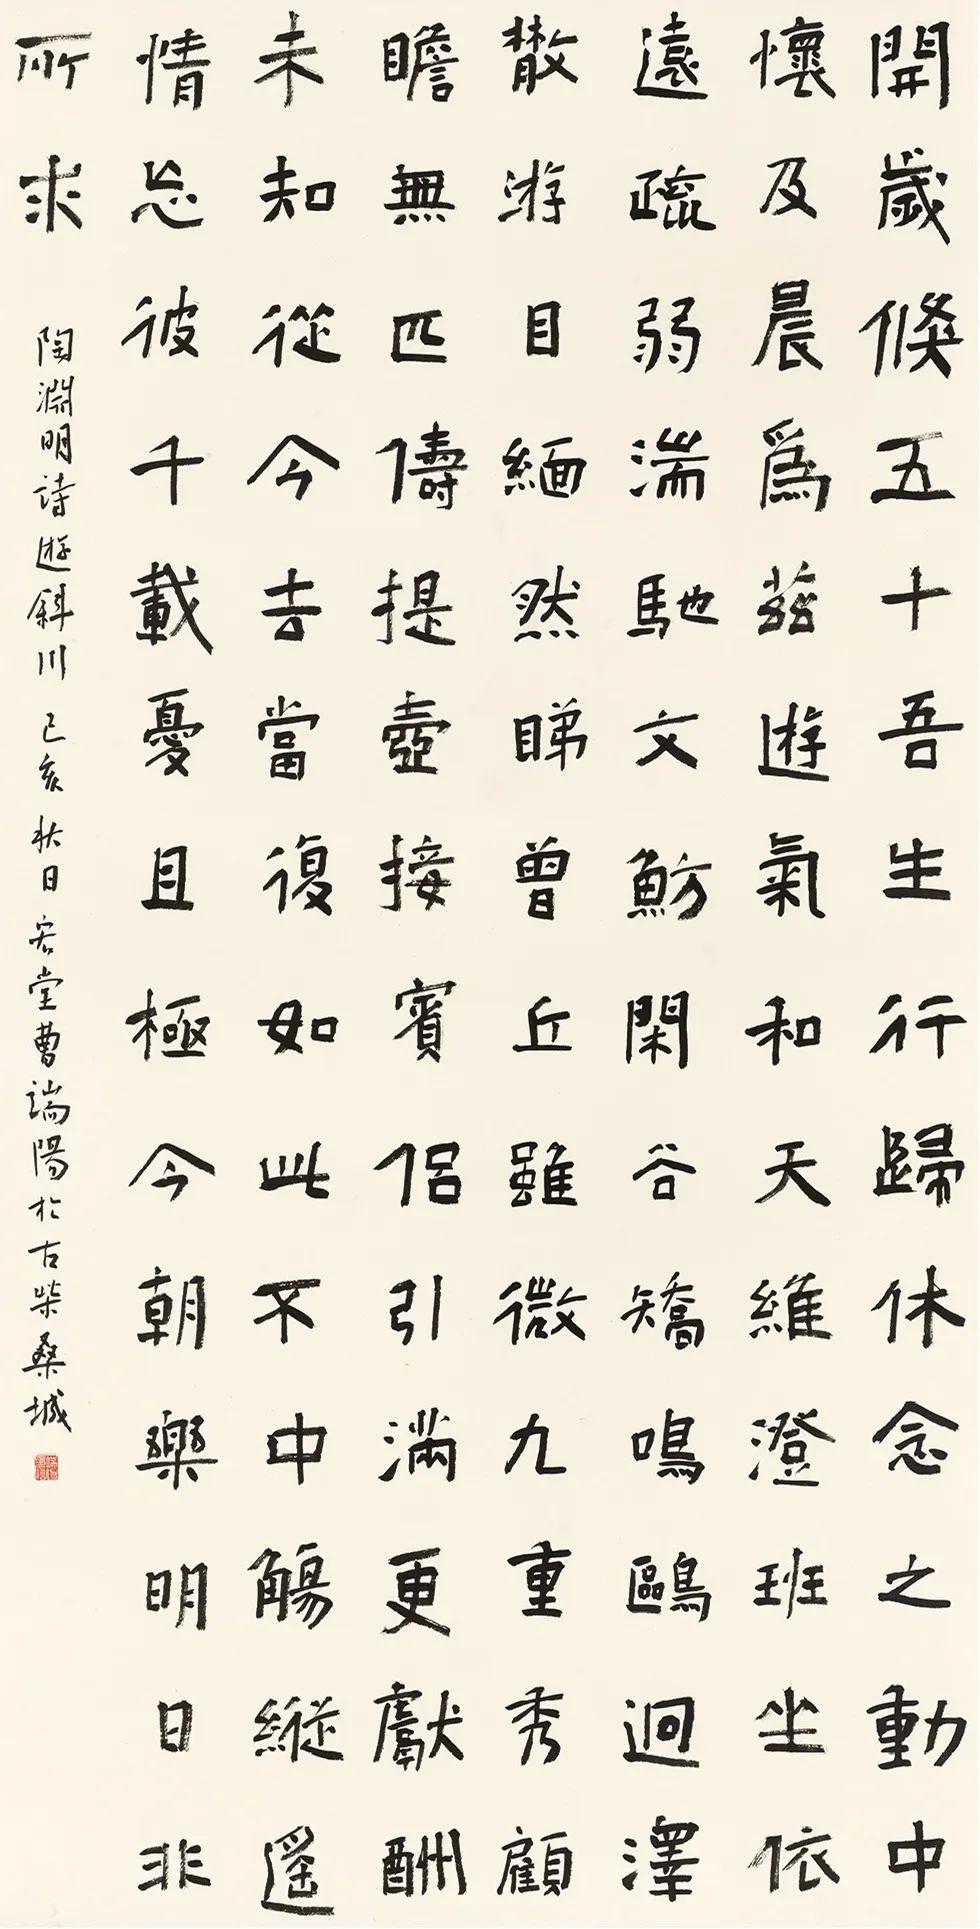 開歲倏五十吾生行歸休念之動中
懷及晨爲茲遊氣和天維澄班坐依
遠疏弱湍馳文魴閑谷矯鳴鷗迥澤
散游目緬然睇曾丘雖微九秀顧
瞻無匹儔提壺接賓侶引滿更獻酬
未知從今去當復如此不中觴縱遥
情忘彼千載憂且極今朝樂明日非
所求
陶淵明詩遊斜川 己亥秋日 容堂曹端陽於古柴桑城